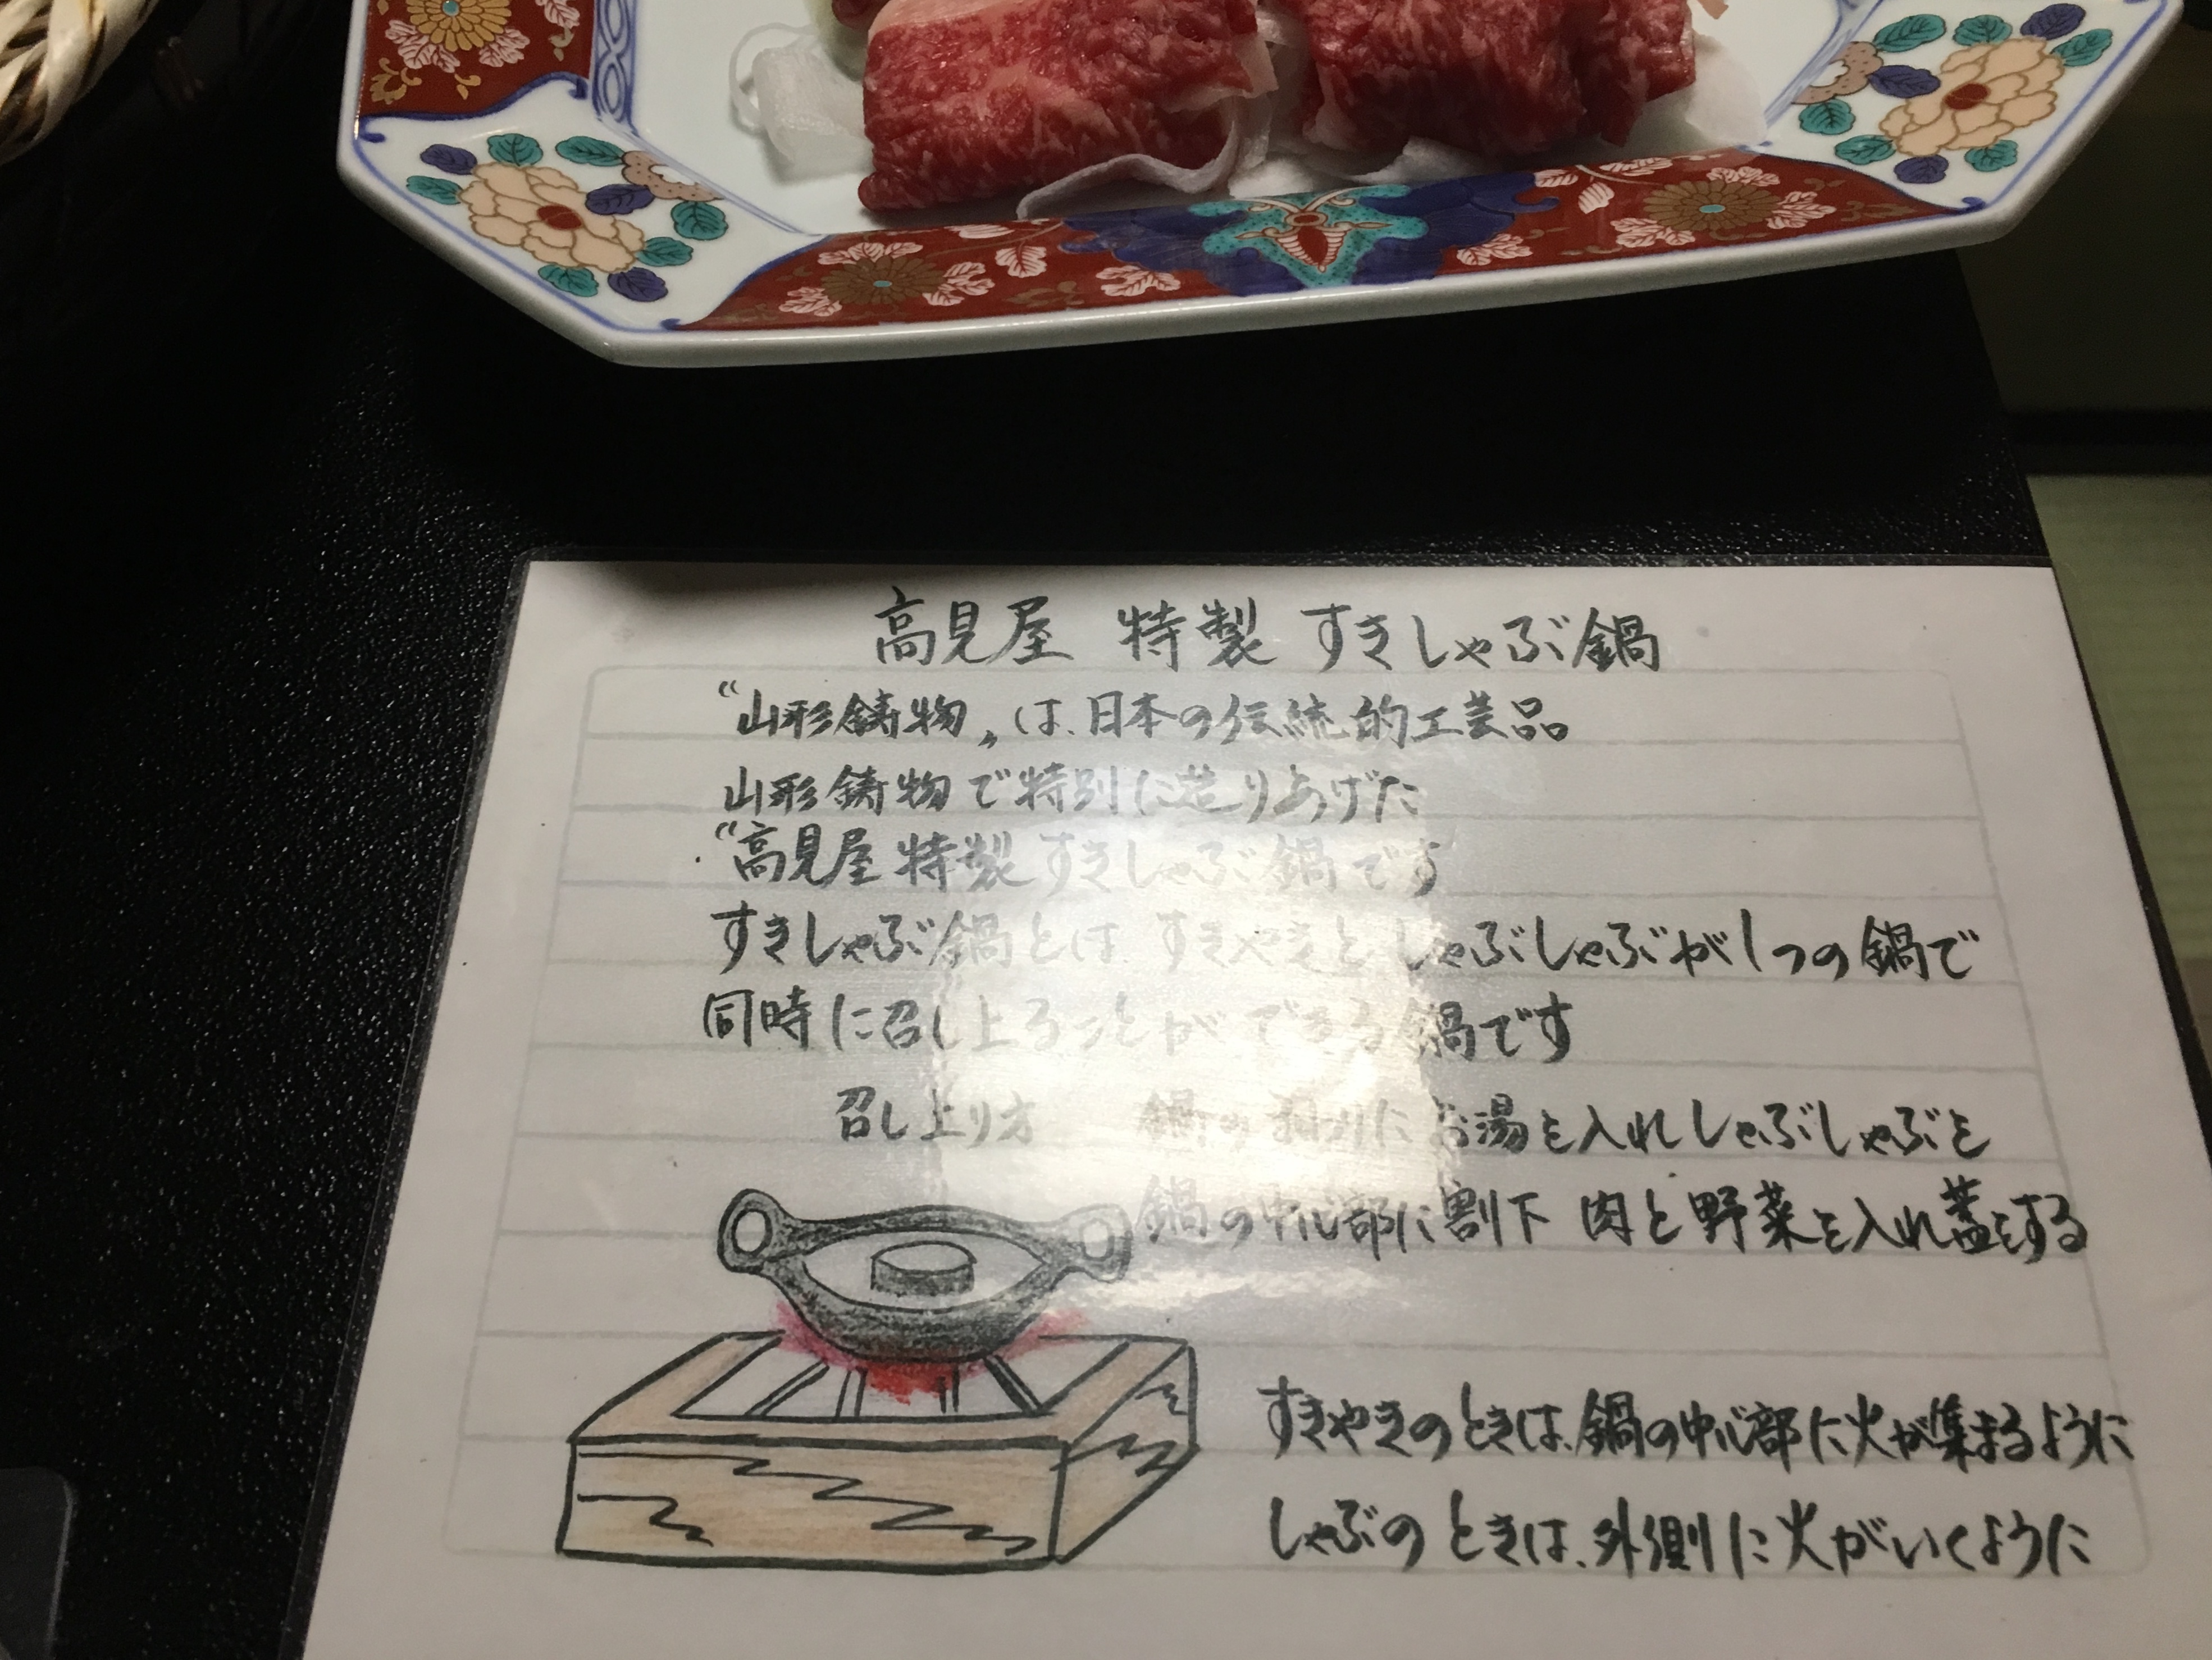 高見屋 特製 すきしゃぶ鍋
“山形鋳物„は、日本の伝統的工芸品
山形鋳物で特別に造りあげた
“高見屋 特製 すきしゃぶ鍋です
すきしゃぶ鍋とは すきやきと しゃぶしゃぶが1つの鍋で
同時に召し上ることができる鍋です
召し上り方 鍋の外側にお湯を入れしゃぶしゃぶを
鍋の中心部に割下 肉と野菜を入れ蓋をする
すきやきのときは、鍋の中心部に火が集まるように
しゃぶのときは、外側に火がいくように